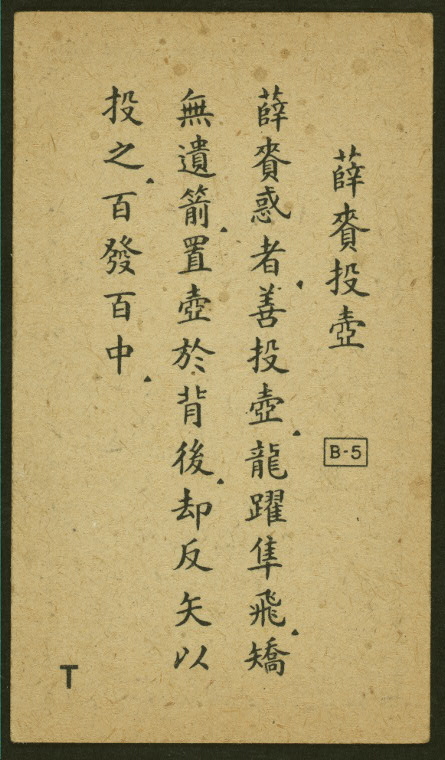 薛賚投壺
B-5
薛賚惑者、善投壺、龍躍隼飛、矯
無遺箭、置壺於背後、却反矢以
投之、百發百中、
T